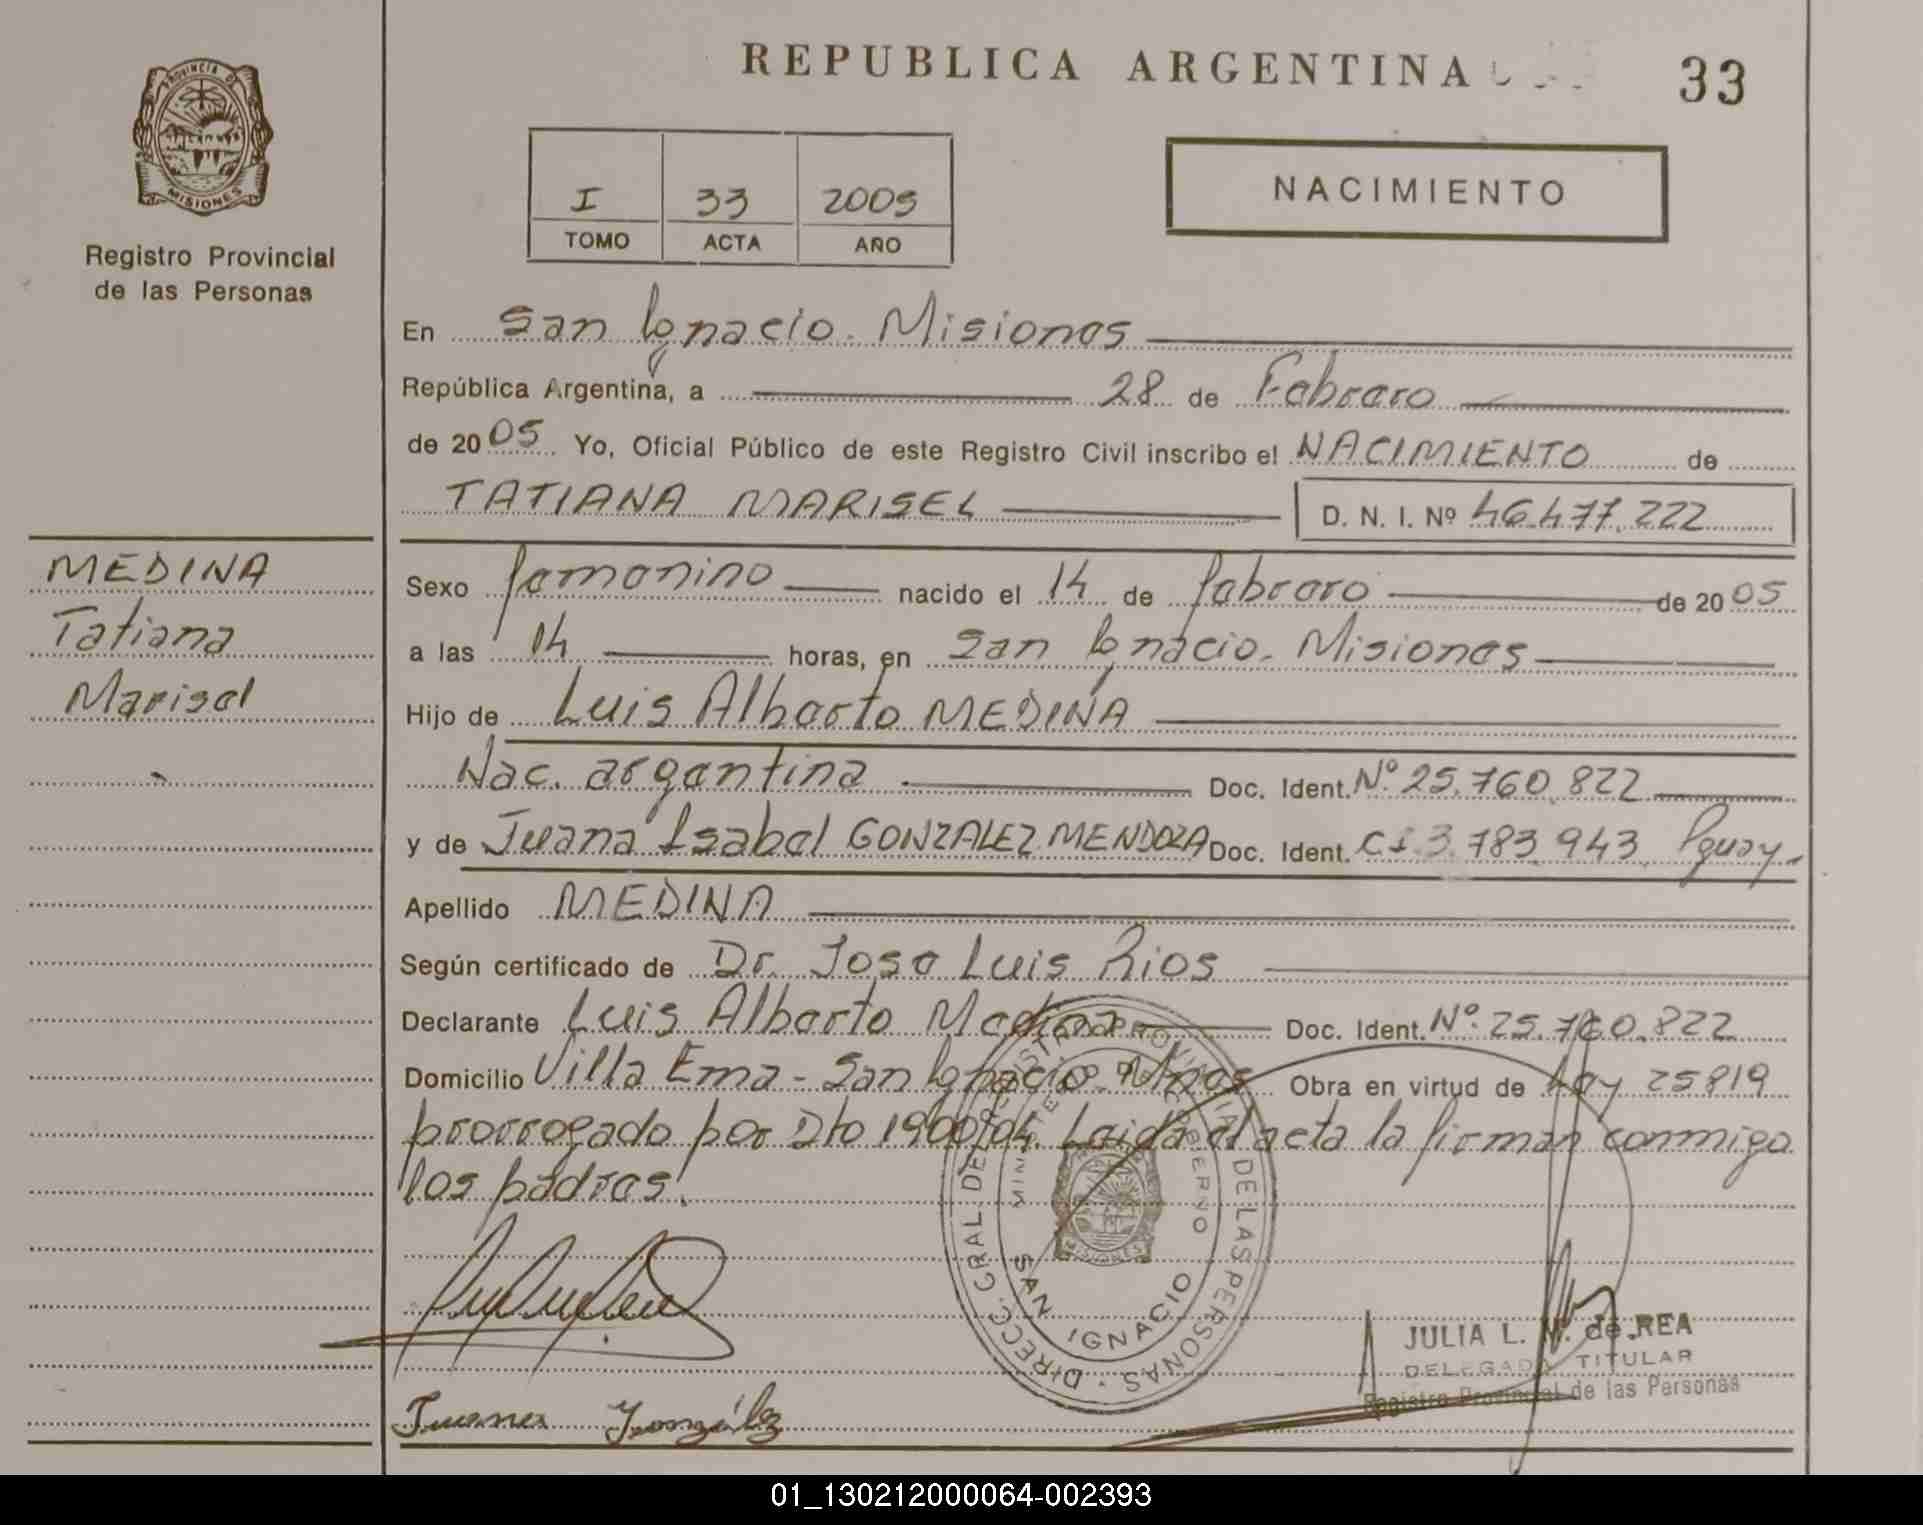 REPUBLICA ARGENTINA
33
PROVINCIA DE
MISIONES
Registro Provincial
de las Personas
I 33 2005
TOMO ACTA AÑO
NACIMIENTO
En San Ignacio. Misiones
República Argentina, a 28 de Febrero
de 2005 Yo, Oficial Público de este Registro Civil inscribo el NACIMIENTO de
TATIANA MARISEL D. N. I. Nº 46.477.222
MEDINA
Tatiana
Marisel
Sexo femenino nacido el 14 de febrero de 2005
a las 14 horas, en San Ignacio. Misiones
Hijo de Luis Alberto MEDINA
Nac. argentina Doc. Ident. Nº 25.760.822
y de Juana Isabel GONZALEZ MENDOZA Doc. Ident. CI 3.783.943 Pguay.
Apellido MEDINA
Según certificado de Dr. Jose Luis Rios
Declarante Luis Alberto Medina Doc. Ident. Nº 25.760.822
Domicilio Villa Ema - San Ignacio. Mnes Obra en virtud de Ley 25819
prorrogado por Dto 1900/04. Leida el acta la firman conmigo
los padres.
DIRECC. GRAL DEL REGISTRO PROVINCIAL DE LAS PERSONAS
MINISTERIO DE GOBIERNO
MISIONES
SAN IGNACIO
JULIA L. M. de REA
DELEGADA TITULAR
Registro Provincial de las Personas
Juana González
01_130212000064-002393